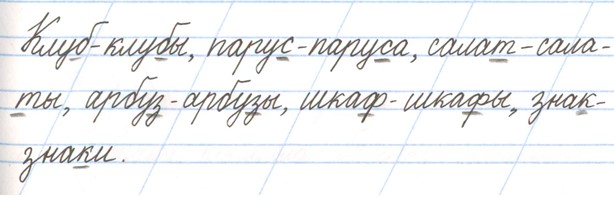 Клуб-клубы, парус-паруса, салат-сала-
ты, арбуз-арбузы, шкаф-шкафы, знак-
знаки.